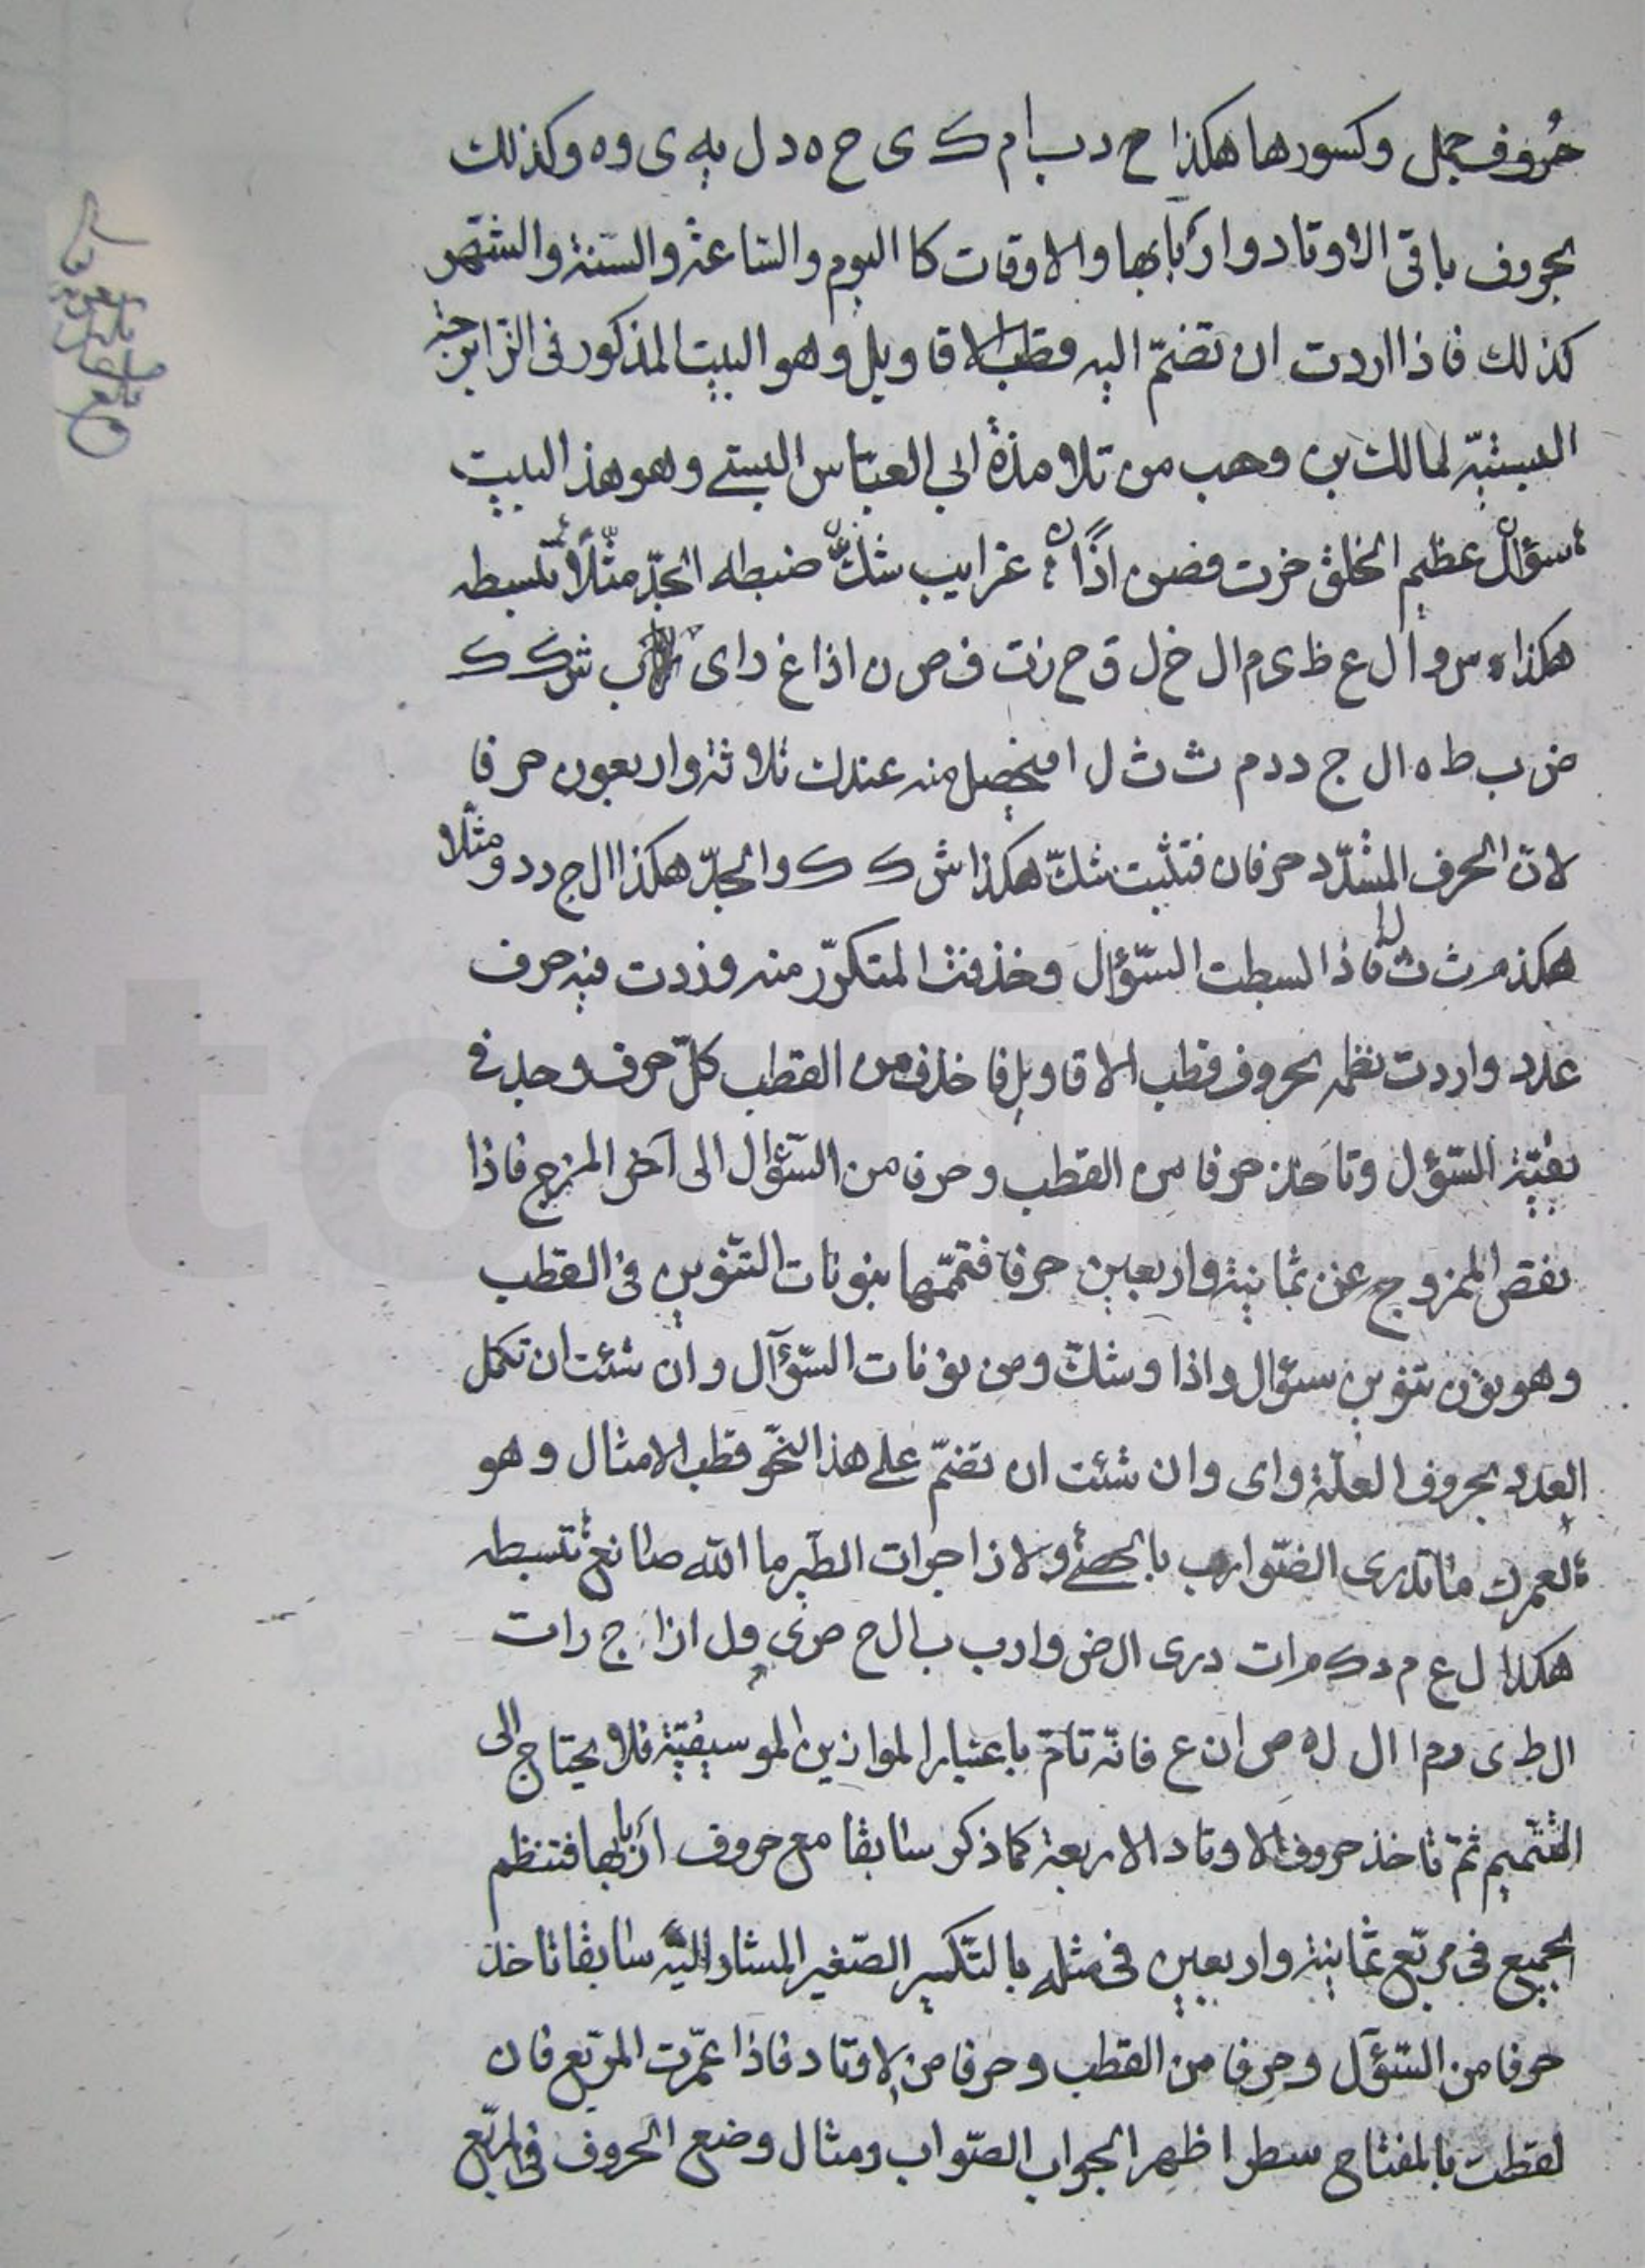 حُروف جمل وكسورها هكذا ح د ب ا م ک ی ح ه د ل یه ی و ه وكذلك
بحروف باقی الاوتاد واربابها والاوقات كا الیوم والساعة والسّنة والشّهر
كذلك فاذا اردت ان تضمّ الیه قطب الاقاویل وهو البیت المذكور فی الزایرجة
السبتیّة لمالك بن وهب من تلامذة ابی العبّاس السبتے وهو هذا البیت
سؤالٌ عظیم الخلق حزت فصن اذًا غرایب شكٌّ ضبطه الجدّ مثّلًا تبسطه
هكذا س و ا ل ع ظ ی م ا ل خ ل ق ح ز ت ف ص ن ا ذ ا غ ر ا ی ب ش ک ک
ض ب ط ه ا ل ج د د م ث ث ل ا فیحصل منه عندك ثلاثة واربعون حرفا
لانّ الحرف المشدّد حرفان فتثبت شكّ هكذا ش ک ک والجدّ هكذا ا ل ج د د ومثّلا
هكذ م ث ث ل ا فاذا بسطت السّؤال وحذفت المتكرّر منه وزدت فیه حرف
عدد واردت نظمه بحروف قطب الاقاویل فاحذف من القطب كلّ حرف وجد فی
بقیّة السّؤل وتاخذ حرفا من القطب وحرفا من السّؤال الی آخر المزج فاذا
نقص الممزوج عن ثمانیة واربعین حرفا فتمّمها بنونات التنوین فی القطب
وهو نون تنوین سؤال واذا وشكّ ومن نونات السّؤآل وان شئت ان تكمل
العدد بحروف العلّة وای وان شئت ان تضمّ علے هذا النّحو قطب الامثال وهو
لعمرك ماتدری الضّوارب بالحصے ولا زاجرات الطّیر ما اللّه صانع تبسطه
هكذا ل ع م ر ک م ا ت د ر ی ا ل ض و ا ر ب ب ا ل ح ص ی و ل ا ز ا ج ر ا ت
ا ل ط ی ر م ا ا ل ل ه ص ا ن ع فانّه تامّ باعتبار الموازین الموسیقیّة فلا یحتاج الی
التتمیم ثمّ تاخذ حروف الاوتاد الاربعة كما ذكر سابقا مع حروف اربابها فتنظم
الجمیع فی مربّع ثمانیة واربعین فی مثله بالتّكسیر الصّغیر المشار الیه سابقا تاخذ
حرفا من السّؤآل وحرفا من القطب وحرفا من الاوتاد فاذا عمّرت المربّع فان
لقطت بالمفتاح سطرا ظهر الجواب الصّواب ومثال وضع الحروف فی المربّع